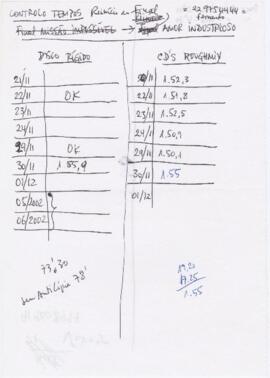 CONTROLO TEMPOS
Final MISSÃO IMPOSSÍVEL → AMOR INDUSTRIOSO
DISCO RÍGIDO
CD'S ROUGHMIX
21/11
22/11 OK
23/11
24/11
29/11 OK
30/11 1.55,9
01/12
05/2002
06/2002
1.52,3
22/11 1.51,8
23/11 1.52,5
24/11 1.50,9
29/11 1.50,1
30/11 1.55
01/12
73',30
78'
19,20
17.25
1.55